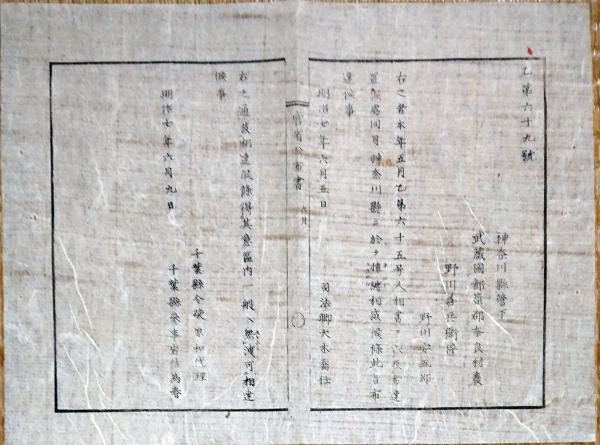 乙第六十九號
神奈川縣管下
武藏國都筑郡奈良村農
野川喜兵衞倅
野川安五郎
右之者本年五月乙第六十五号人相書ヲ以及布達
置候處同月神奈川縣ニ於テ捕縛相成候條此旨布
達候事
明治七年六月五日
司法卿大木喬任
省布書
六月
右之通被相達候條得其意區内一般ヘ無洩可相達
候事
明治七年六月九日
千葉縣令柴原和代理
千葉縣參事岩佐爲春